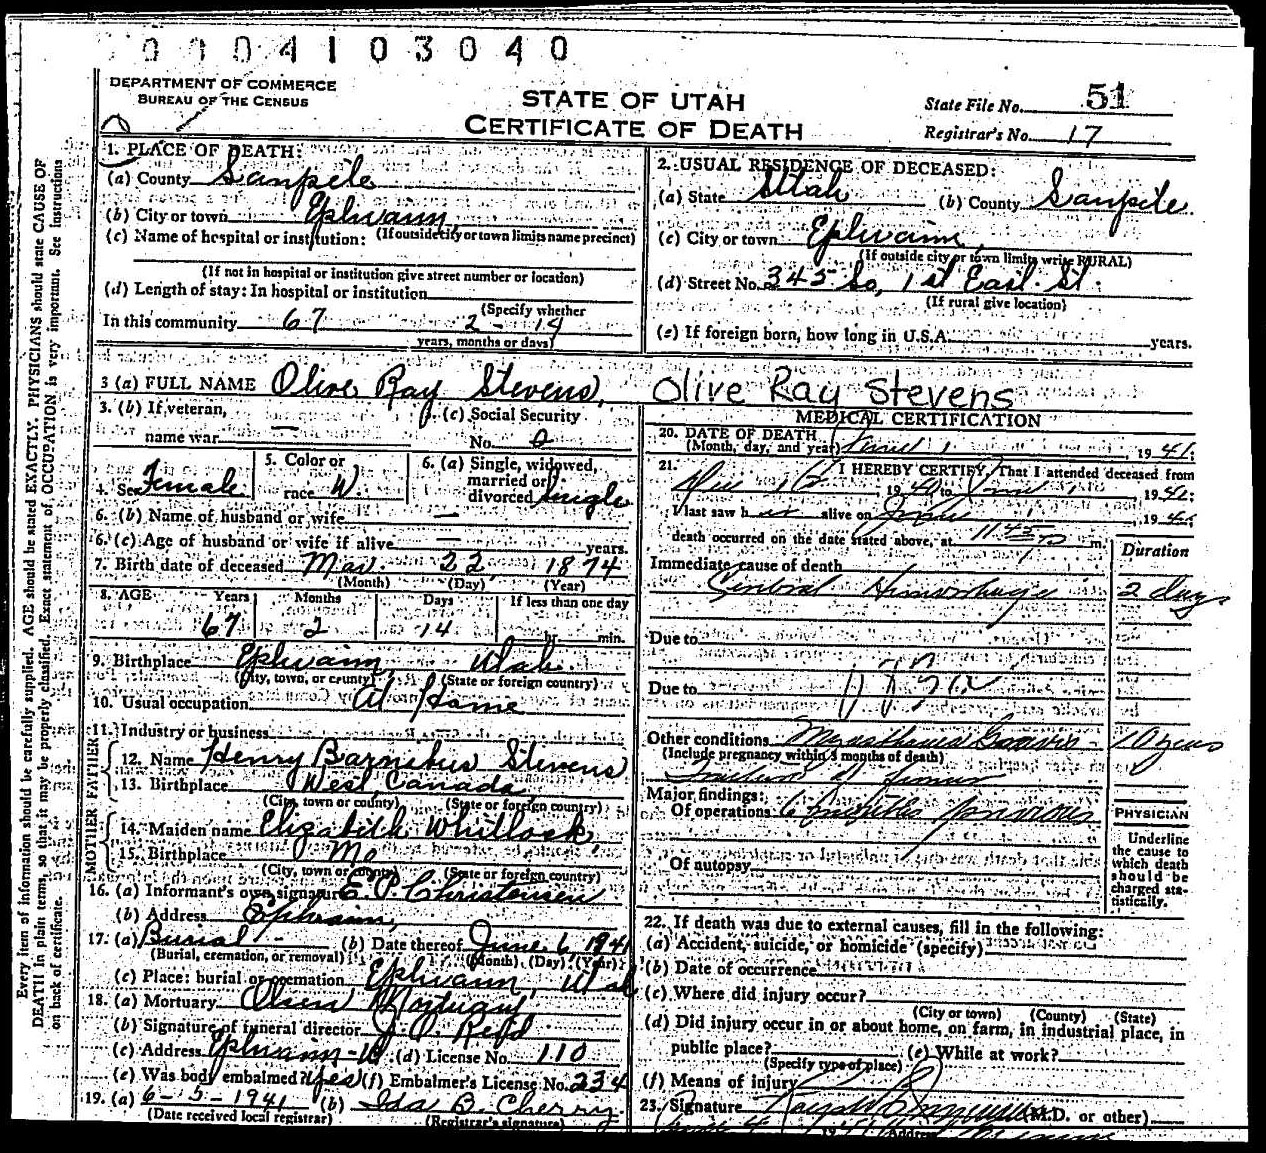 0004103040
DEPARTMENT OF COMMERCE
BUREAU OF THE CENSUS
STATE OF UTAH
CERTIFICATE OF DEATH
State File No. 51
Registrar's No. 17
1. PLACE OF DEATH:
(a) County Sanpete
(b) City or town Ephraim
(If outside city or town limits name precinct)
(c) Name of hospital or institution:
(If not in hospital or institution give street number or location)
(d) Length of stay: In hospital or institution
(Specify whether
In this community 67 2 - 14
years, months or days)
2. USUAL RESIDENCE OF DECEASED:
(a) State Utah (b) County Sanpete
(c) City or town Ephraim,
(If outside city or town limits write RURAL)
(d) Street No. 345 So, 1st East. St.
(If rural give location)
(e) If foreign born, how long in U.S.A. years.
3 (a) FULL NAME Olive Ray Stevens, Olive Ray Stevens
3. (b) If veteran,
name war —
(c) Social Security
No. 0
4. Sex Female
5. Color or
race W.
6. (a) Single, widowed,
married or
divorced Single
6. (b) Name of husband or wife —
6. (c) Age of husband or wife if alive — years.
7. Birth date of deceased Mar. 22, 1874
(Month) (Day) (Year)
8. AGE Years Months Days If less than one day
67 2 14 hr. min.
9. Birthplace Ephraim, Utah.
(City, town, or county) (State or foreign country)
10. Usual occupation At Home
11. Industry or business
FATHER
12. Name Henry Barnabus Stevens
13. Birthplace West, Canada
(City, town or county) (State or foreign country)
MOTHER
14. Maiden name Elizabeth Whitlock,
15. Birthplace Mo
(City, town or county) (State or foreign country)
16. (a) Informant's own signature E. P. Christensen
(b) Address Ephraim,
17. (a) Burial (b) Date thereof June 6, 1941
(Burial, cremation, or removal) (Month) (Day) (Year)
(c) Place: burial or cremation Ephraim, Utah
18. (a) Mortuary Olsen Mortuary
(b) Signature of funeral director
(c) Address Ephraim-U (d) License No. 110
(e) Was body embalmed? yes (f) Embalmer's License No. 234
19. (a) 6-5-1941 (b) Ida B. Cherry
(Date received local registrar) (Registrar's signature)
MEDICAL CERTIFICATION
20. DATE OF DEATH
(Month, day, and year) 1941;
21. I HEREBY CERTIFY, That I attended deceased from
1940 to June 1941;
I last saw her alive on June, 1941
death occurred on the date stated above, at 11:45 m.
Duration
Immediate cause of death
Cerebral Hemorrhage 2 days
Due to
Due to
Other conditions Myasthenia Gravis - 10 years
(Include pregnancy within 3 months of death)
Major findings:
Of operations
Of autopsy
PHYSICIAN
Underline
the cause to
which death
should be
charged sta-
tistically.
22. If death was due to external causes, fill in the following:
(a) Accident, suicide, or homicide (specify)
(b) Date of occurrence
(c) Where did injury occur?
(City or town) (County) (State)
(d) Did injury occur in or about home, on farm, in industrial place, in
public place? (e) While at work?
(Specify type of place)
(f) Means of injury
23. Signature (M.D. or other)
Address
Every item of information should be carefully supplied. AGE should be stated EXACTLY. PHYSICIANS should state CAUSE OF
DEATH in plain terms, so that it may be properly classified. Exact statement of OCCUPATION is very important. See instructions
on back of certificate.